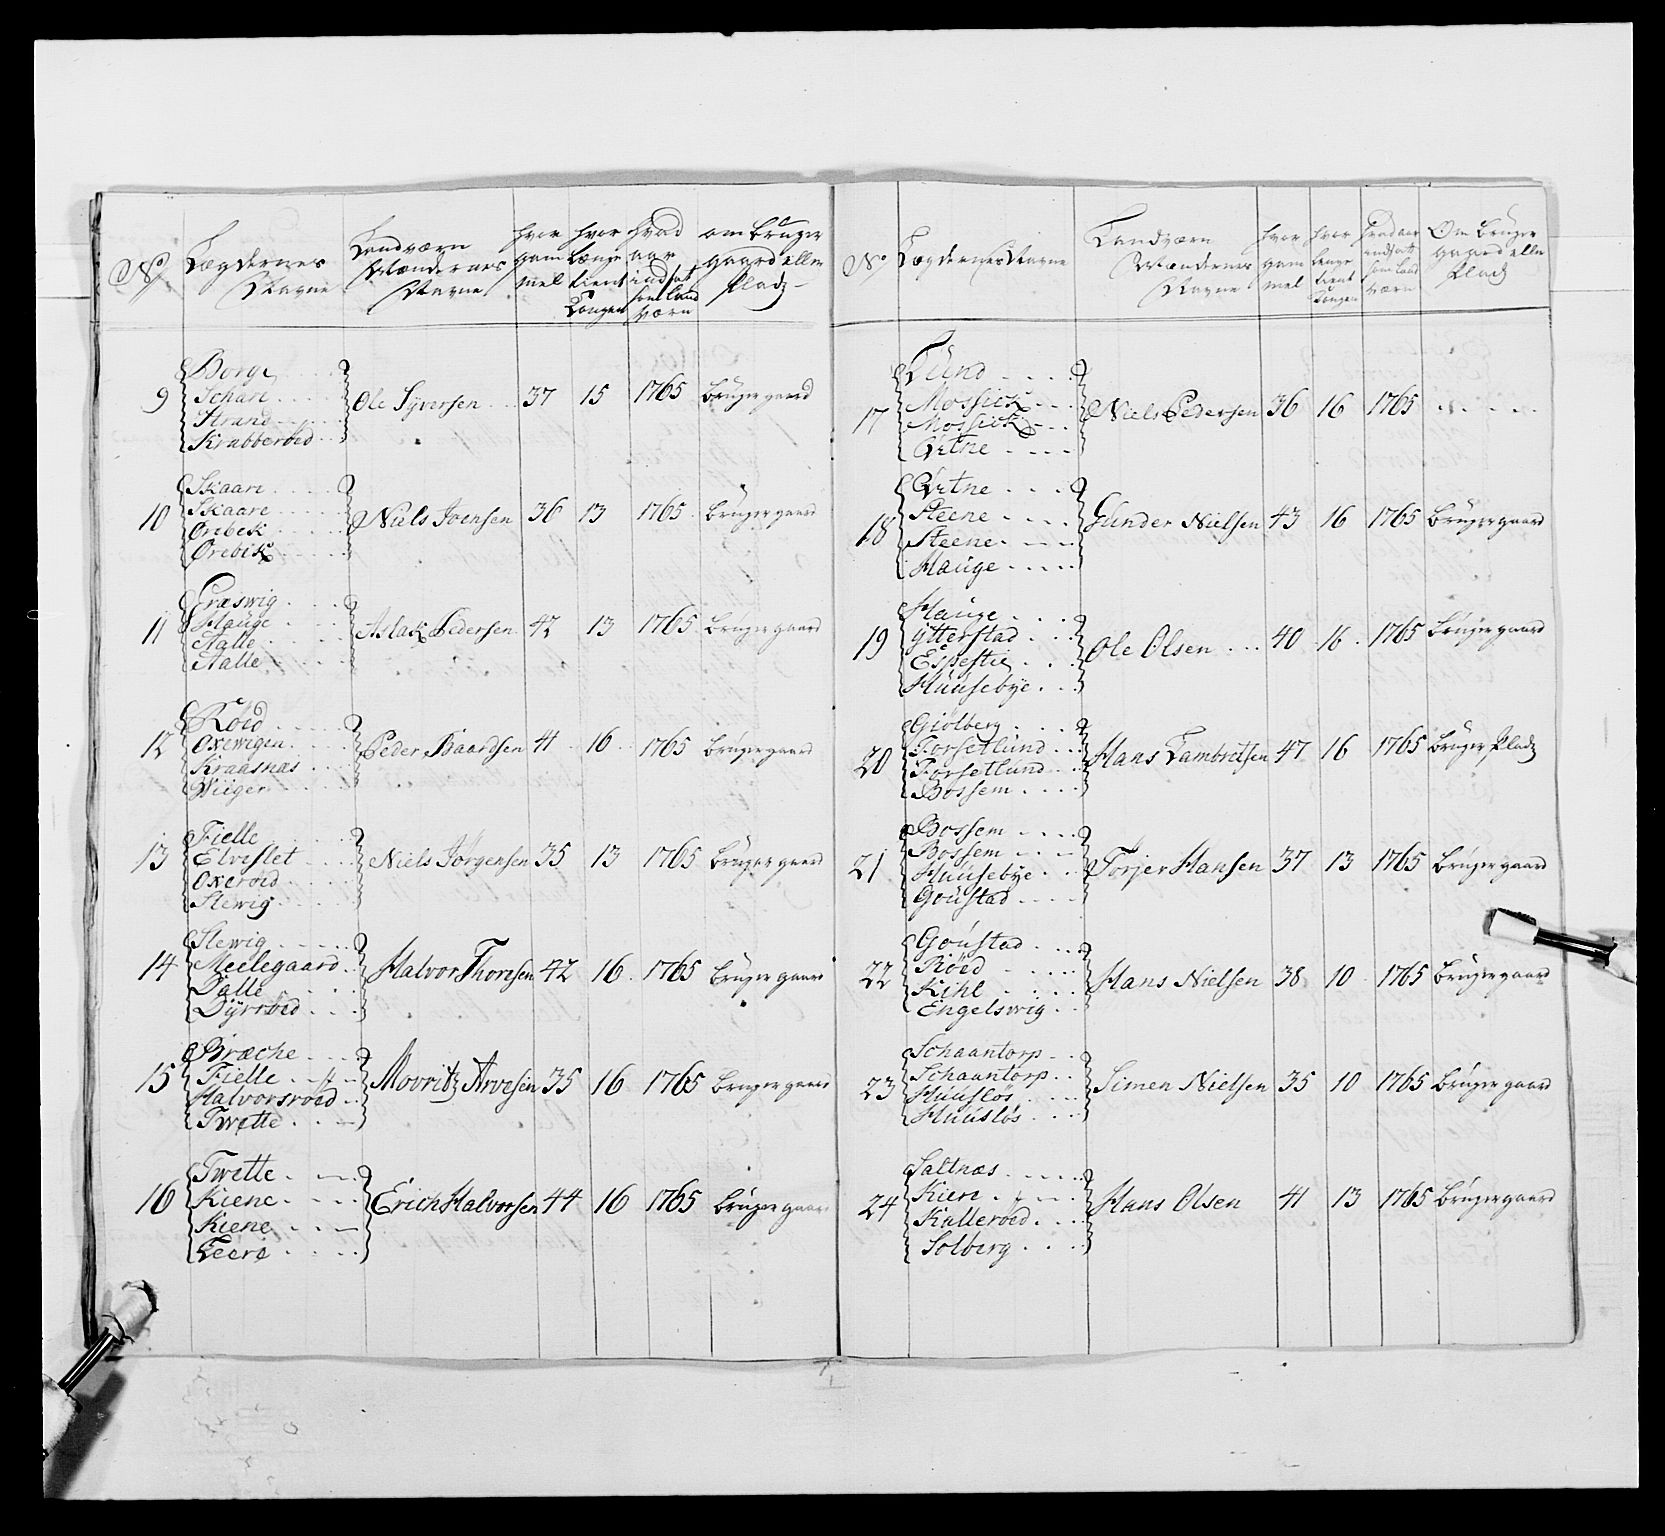 No
Lægdernes
Navne
Landværn
Mændernes
Navne
hvor
gam
mel
hvor
længe
tient
Kongen
hvad
aar
indsat
som land
værn
om bruger
gaard eller
Plads
9
Borge
Schare
Strand
Krabberød
Ole Syversen 37 15 1765 bruger gaard
10
Skaare
Skaare
Ørebek
Ørebek
Niels Joensen 36 13 1765 bruger gaard
11
Græswig
Hauge
Aalle
Aalle
Aslak Pedersen 42 13 1765 bruger gaard
12
Røed
Oxewigen
Kraasnæs
Wiiger
Peder Baardsen 41 16 1765 bruger gaard
13
Fielle
Elveslet
Oxeroed
Slewig
Niels Jörgensen 35 13 1765 bruger gaard
14
Slewig
Meelegaard
Dalle
Dyrrød
Halvor Thoresen 42 16 1765 bruger gaard
15
Bræche
Fielle
Halvorsroed
Twette
Movritz Arvesen 35 16 1765 bruger gaard
16
Twette
Kiene
Kiene
Leere
Erich Halvorsen 44 16 1765 bruger gaard
No
Lægdernes Navne
Landværn
Mændernes
Navne
hvor
gam
mel
hvor
længe
tient
Kongen
hvad aar
indsatt
som land
værn
Om bruger
gaard eller
Plads
17
Lund
Mossick
Mossick
Qvitne
Niels Pedersen 36 16 1765
18
Qvitne
Steene
Steene
Hauge
Gunder Nielsen 43 16 1765 bruger gaard
19
Hauge
Ytterstad
Espestie
Huusebye
Ole Olsen 40 16 1765 bruger gaard
20
Giölberg
Forsetlund
Forsetlund
Bossem
Hans Lambretsen 47 16 1765 bruger Plads
21
Bossem
Bossem
Huusebye
Goustad
Torjer Hansen 37 13 1765 bruger gaard
22
Goustad
Röed
Kihl
Engelswig
Hans Nielsen 38 10 1765 bruger gaard
23
Schaantorp
Schaantorp
Huuslös
Huuslös
Simen Nielsen 35 10 1765 bruger gaard
24
Saltnæs
Kiere
Kalleroed
Solberg
Hans Olsen 41 13 1765 bruger gaard